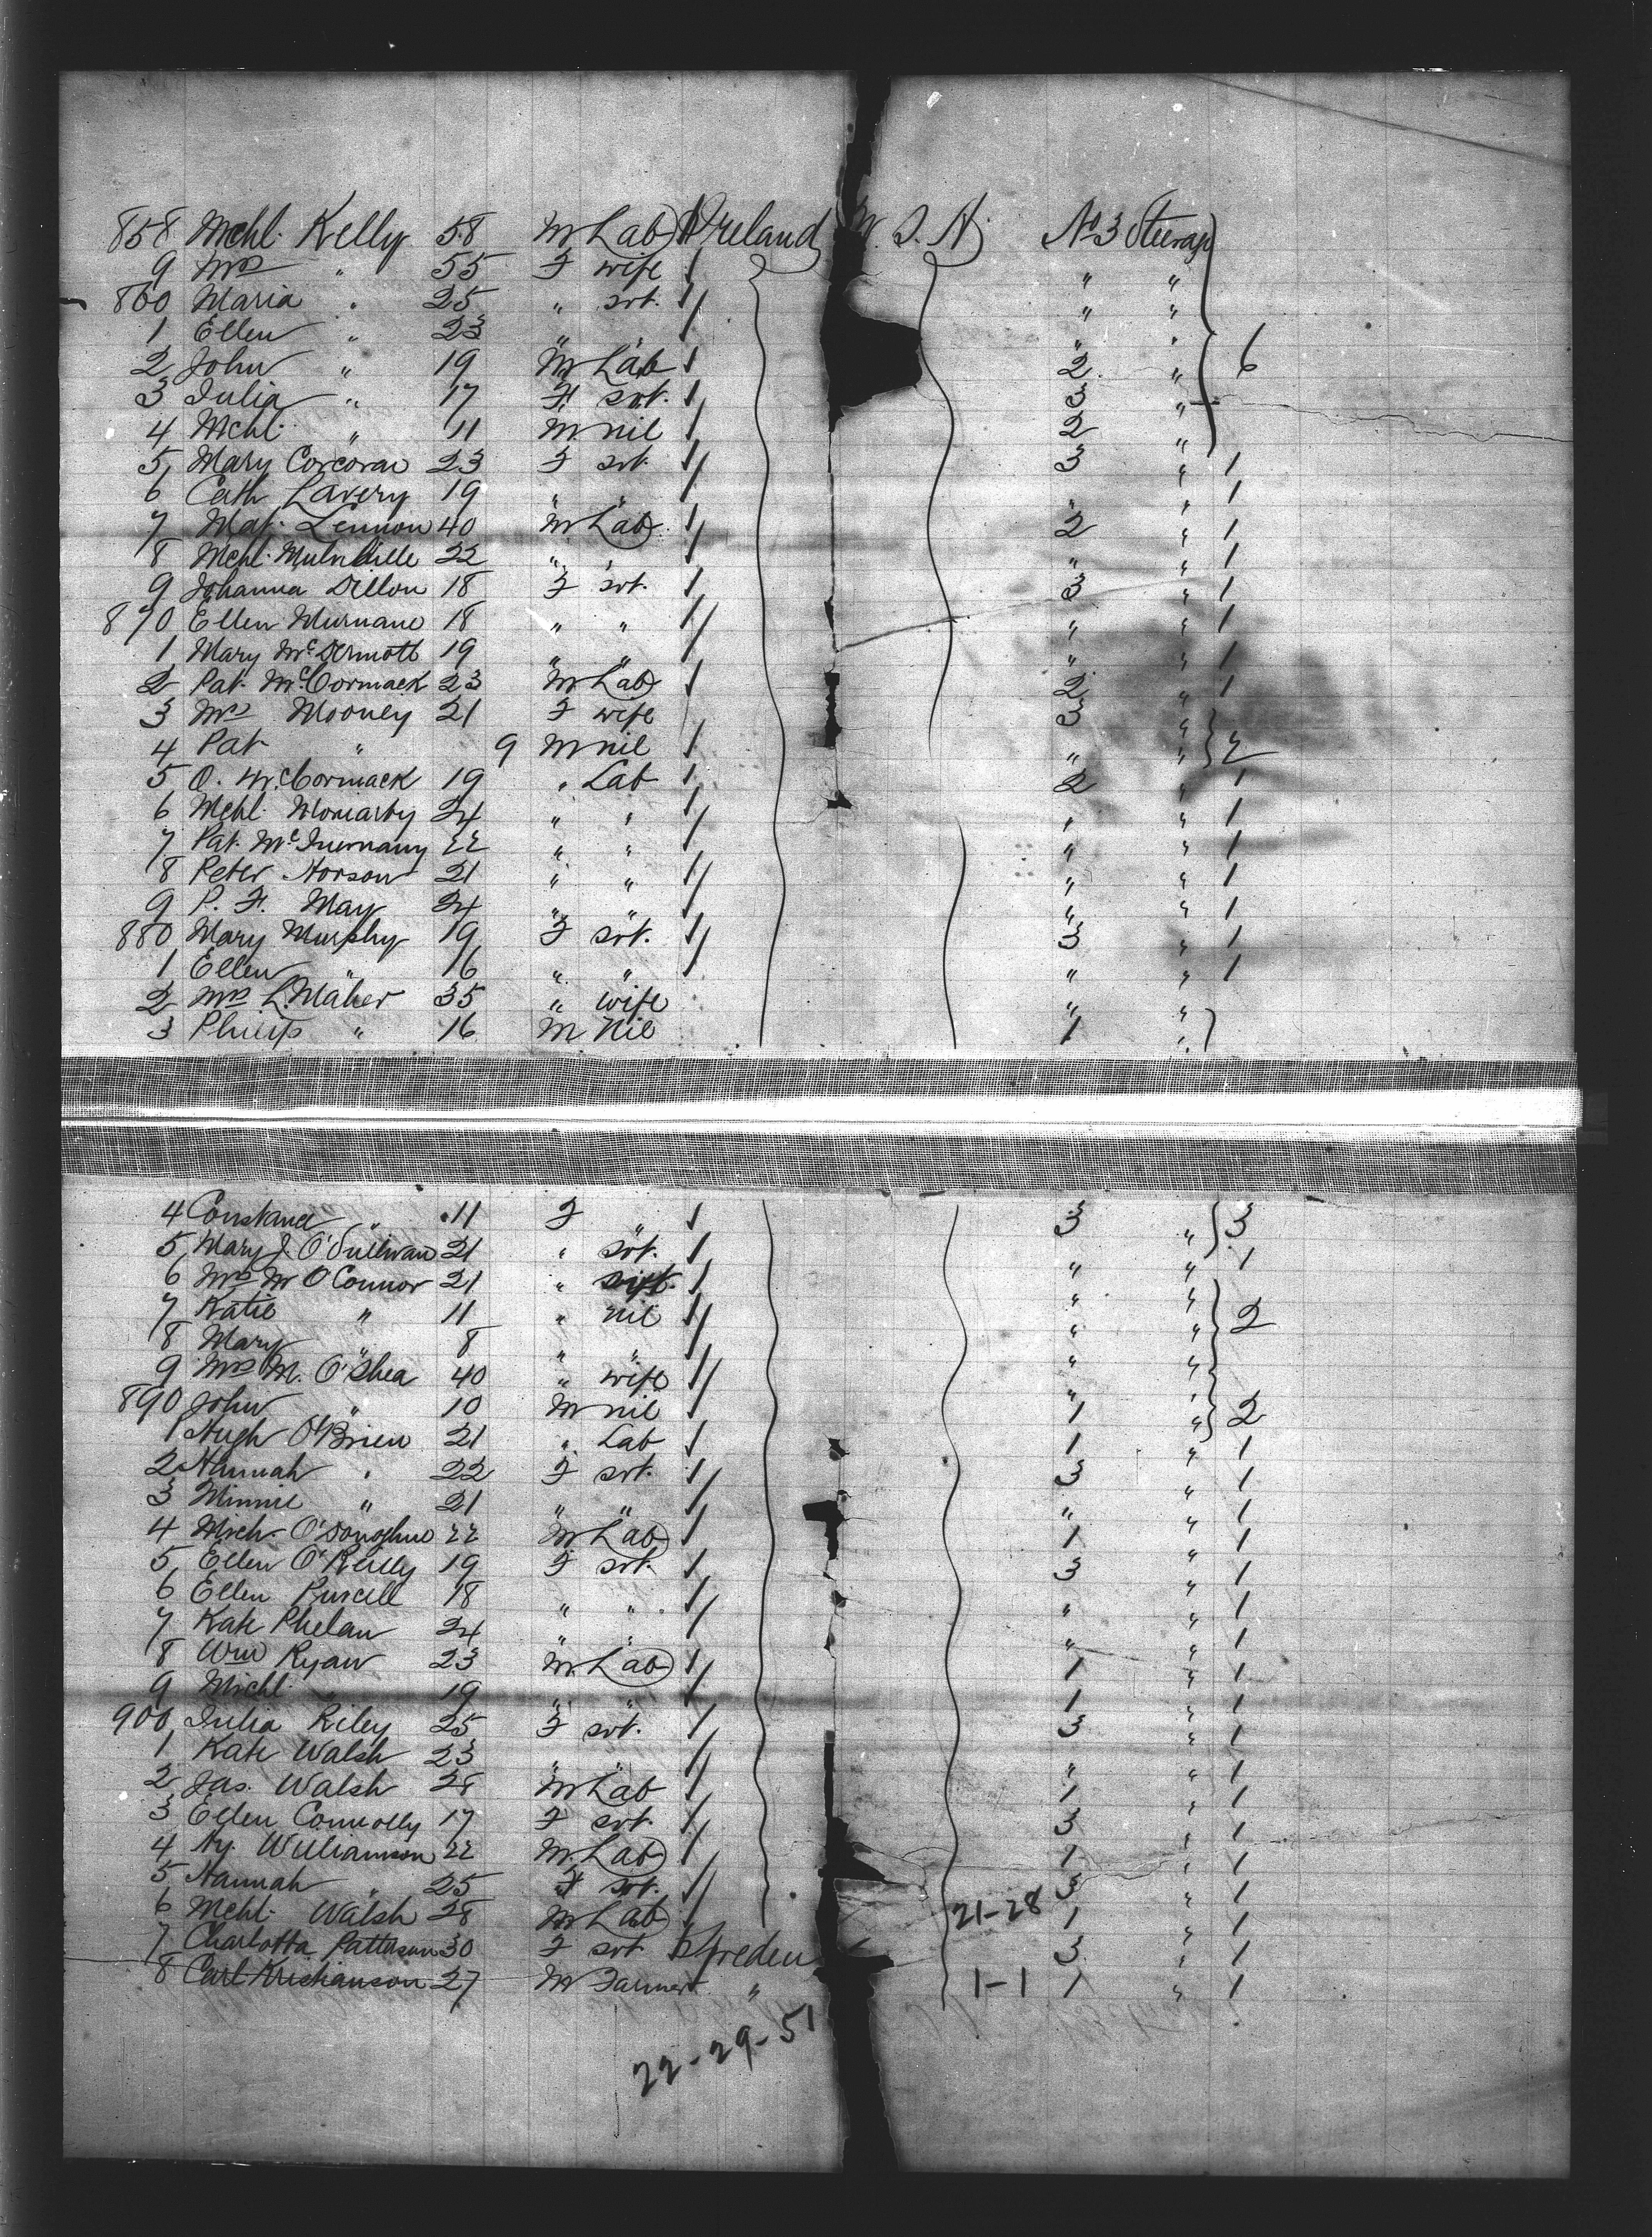 858 Mchl. Kelly 58 M Lab Ireland U. S. A. No 3 Steerage
9 Mrs " 55 F wife "  "
860 Maria " 25 " svt. " "
1 Ellen " 23 " " " "
2 John " 19 M Lab 2 " 6
3 Julia " 17 F svt. 3 "
4 Mchl. " 11 M nil 2 "
5 Mary Corcoran 23 F svt. 3 " 1
6 Cath Lavery 19 " " " " 1
7 Mat. Lennon 40 M Lab 2 " 1
8 Mchl. 22 " " " " 1
9 Johanna Dillon 18 F svt. 3 " 1
870 Ellen Murnane 18 " " " " 1
1 Mary McDermott 19 " " " " 1
2 Pat. McCormack 23 M Lab 2 " 1
3 Mrs Mooney 21 F wife 3 "
4 Pat " 9 M nil " " 2
5 O. McCormack 19 " Lab 2 " 1
6 Mchl. Moriarty 24 " " " " 1
7 Pat. 22 " " " " 1
8 Peter 21 " " " " 1
9 P. F. May 24 " " " " 1
880 Mary Murphy 19 F svt. 3 " 1
1 Ellen " 16 " " " " 1
2 Mrs L. Maher 35 " wife " "
3 Philip " 16 M Nil 1 "
4 Constance " 11 F " 3 " 3
5 Mary J. O'Sullivan 21 " svt. " " 1
6 Mrs M O'Connor 21 " " "
7 Katie " 11 " nil " " 2
8 Mary " 8 " " " "
9 Mrs M. O'Shea 40 " wife " "
890 John " 10 M nil 1 " 2
1 Hugh O'Brien 21 " Lab 1 " 1
2 Hannah " 22 F svt. 3 " 1
3 Minnie " 21 " " " " 1
4 Mich. O'Donoghue 22 M Lab 1 " 1
5 Ellen O'Reilly 19 F svt. 3 " 1
6 Ellen Purcell 18 " " " " 1
7 Kate Phelan 24 " " " " 1
8 Wm Ryan 23 M Lab 1 " 1
9 Michl. " 19 " " 1 " 1
900 Julia Riley 25 F svt. 3 " 1
1 Kate Walsh 23 " " " " 1
2 Jas. Walsh 28 M Lab 1 " 1
3 Ellen Connolly 17 F svt. 3 " 1
4 Hy. Williamson 22 M Lab 1 " 1
5 Hannah " 25 F svt. 3 " 1
6 Mchl. Walsh 28 M Lab 21-28 1 " 1
7 Charlotta Patterson 30 F svt Sweden 3 " 1
8 Carl Kristianson 27 M Farmer " 1-1 1 " 1
22-29-51